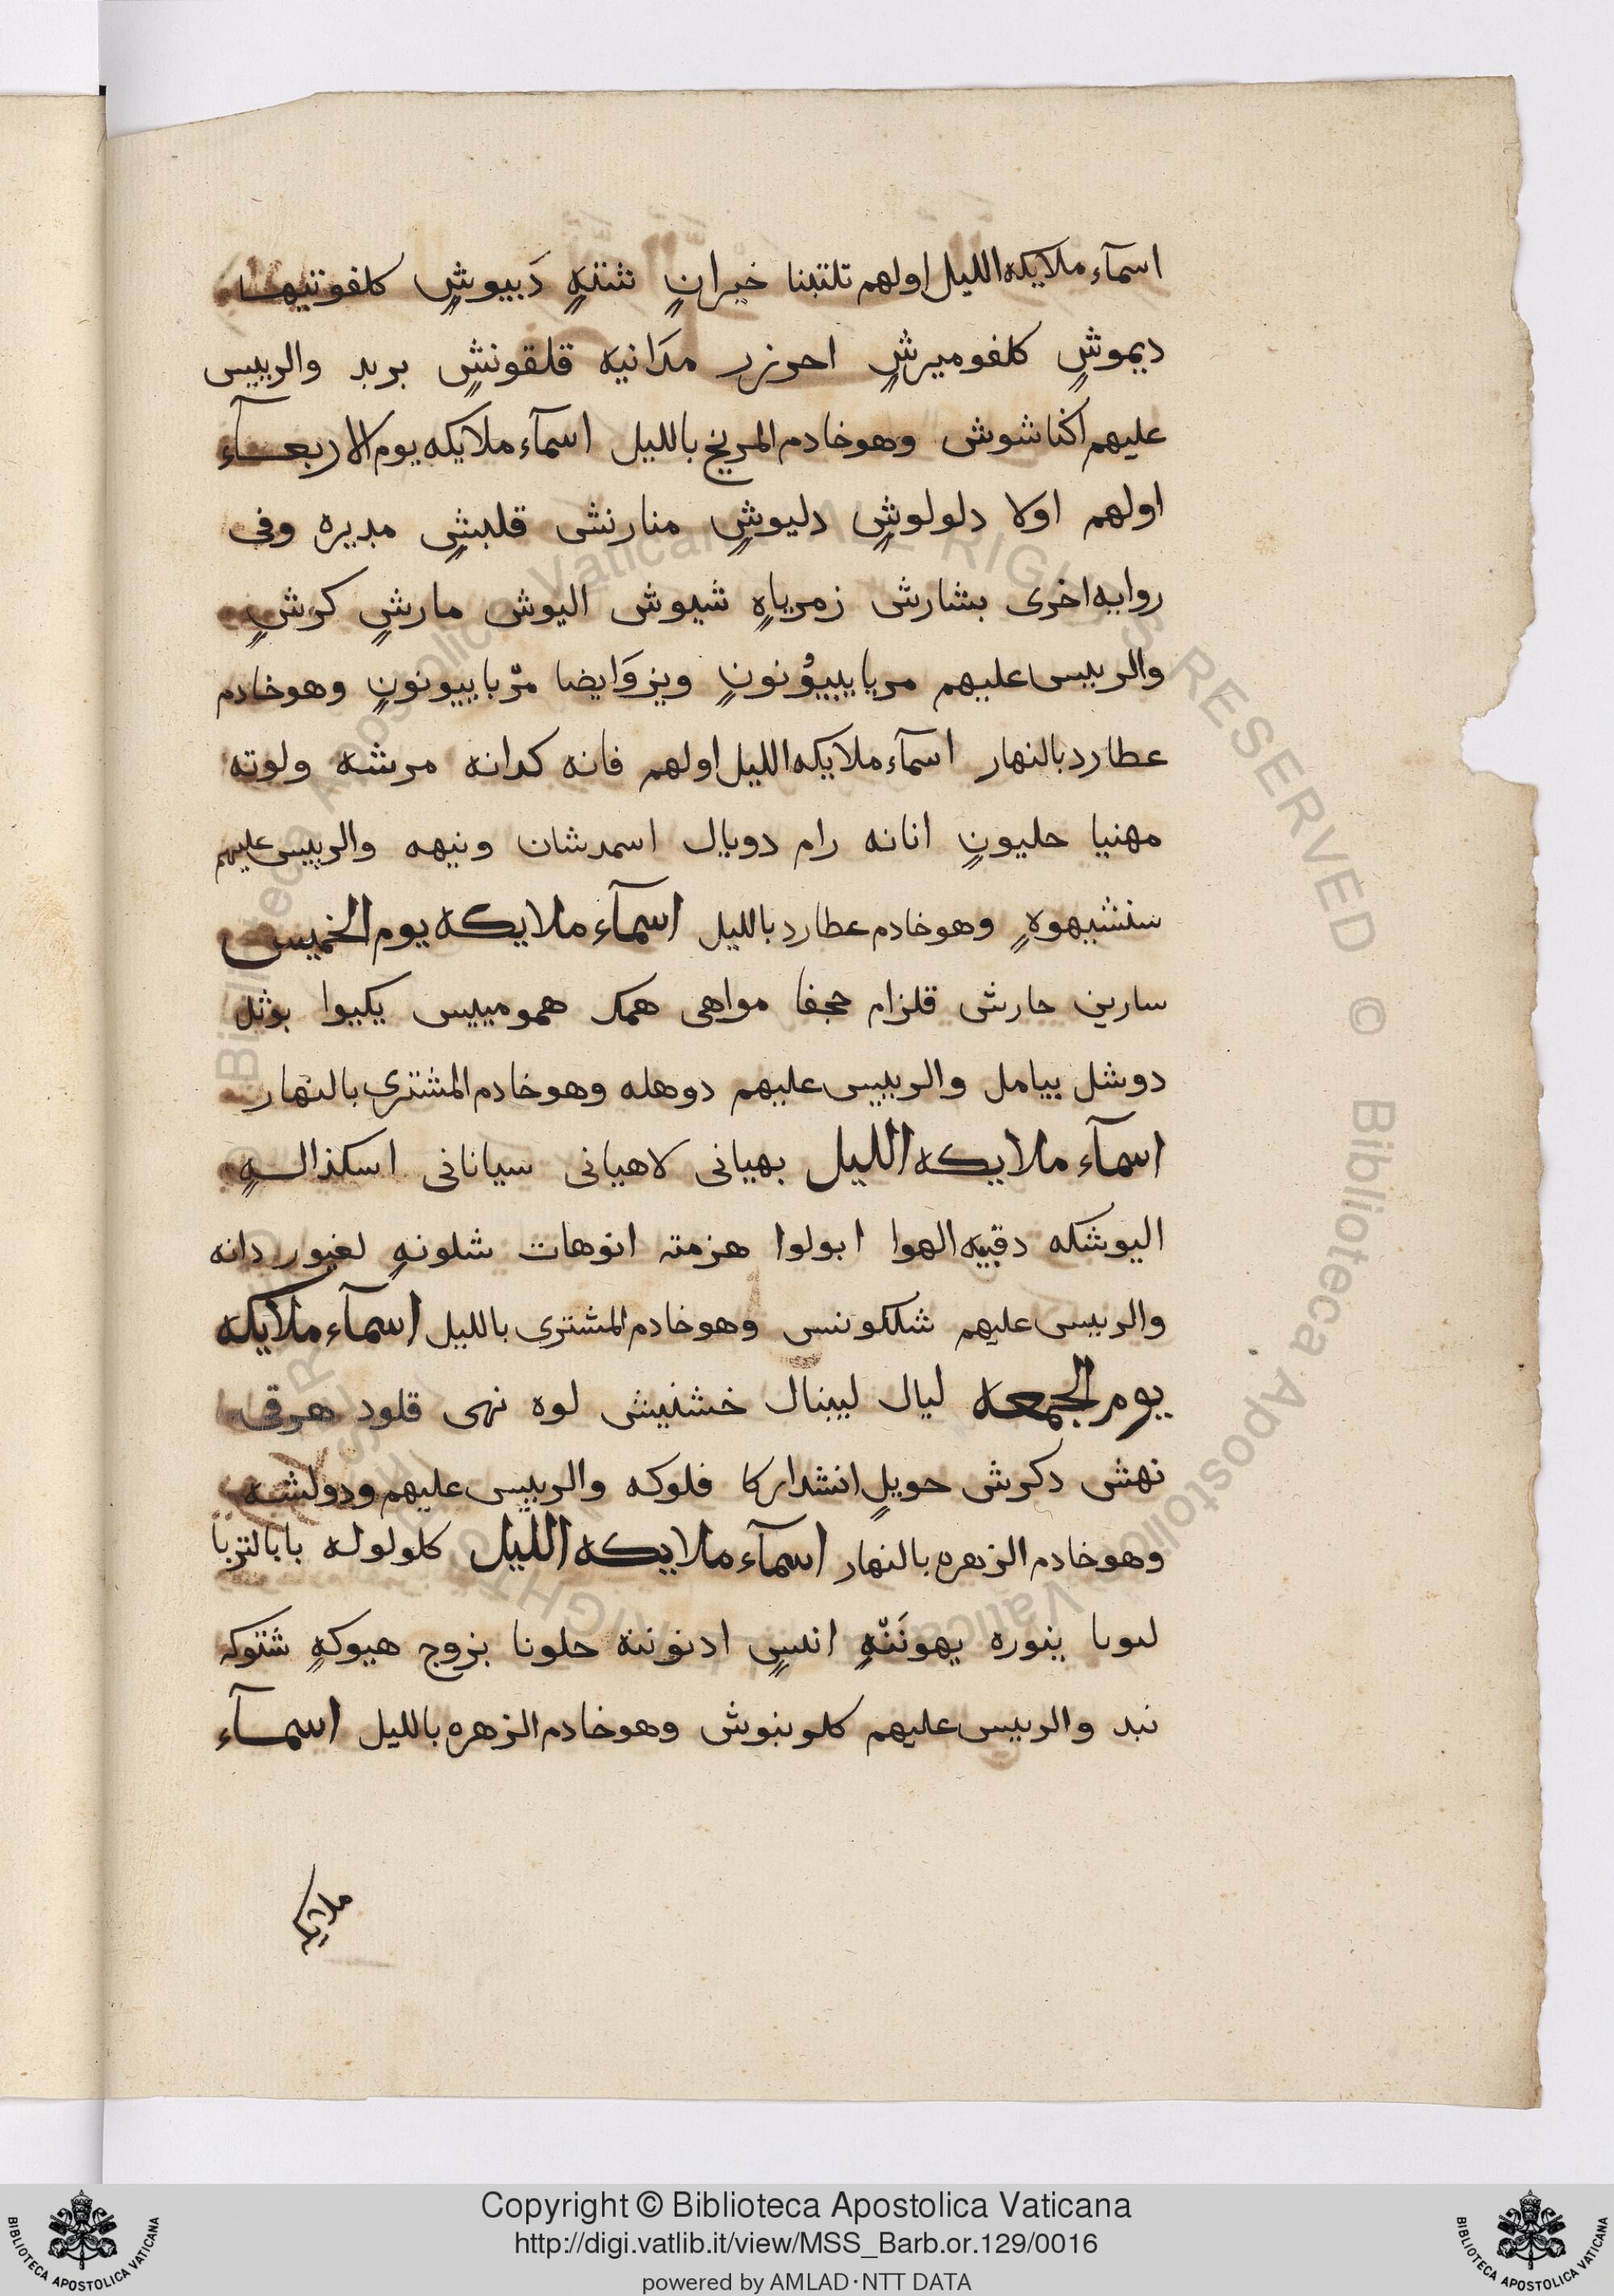 اسمآء ملايكه الليل اولهم تلتبنا خيرانٍ شتتهٍ دَبيوشٍ كلفوتيها
ديموشٍ كلفوميرشٍ احرزر مدَانيه قلقونشٍ بربد والرييس
عليهم اكناشوش وهو خادم المريخ بالليل اسمآء ملايكه يوم الاربعــآء
اولهم اولا دلولوشٍ دليوشٍ منارنشى قلبشٍ مديره وفى
روايه اخرى بشارش زمرياهٍ شيوش اليوش مارشٍ كرشٍ
والرييس عليهم مريايبيوُنونٍ ويزوَايضا مرّباييونونٍ وهو خادم
عطارد بالنهار اسمآء ملايكه الليل اولهم فانه كدانه مرشه ولوته
مهنيا حليونٍ انانه رام دويال اسمدشان ونيهه والرييس عليهم
سنشبيهوهٍ وهو خادم عطارد بالليل اسمآء ملايكه يوم الخميس
سارين حارش قلزام حجفا مواهى همك همومييس يكيوا بوثل
دوشل بيامل والرييس عليهم دوهله وهو خادم المشترى بالنهار
اسمآء ملايكه الليل بهيانى لاهيانى سيانانى اسكذالــهٍ
اليوشكه دقيه الهوا ابولوا هزمته انوهات شلونهٍ لغيور دانه
والرييس عليهم شككونس وهو خادم المشترى بالليل اسمآء ملايكه
يوم الجمعه ليال ليبنال خشنيش لوه نهى قلود هرقى
نهش دكرش حويلٍ انشداركا فلوكه والرييس عليهم ودولشه
وهو خادم الزهره بالنهار اسمآء ملايكه اللّيل كلولوله بابالتربا
لبوبا ينوره يهونَنّهٍ انسٍ ادنوننه حلونا بزوج هيوكهٍ شتوكه
نبد والرييس عليهم كلوبنوش وهو خادم الزهره بالليل اسمــآء
ملايكه
Copyright © Biblioteca Apostolica Vaticana
http://digi.vatlib.it/view/MSS_Barb.or.129/0016
powered by AMLAD·NTT DATA
BIBLIOTECA APOSTOLICA VATICANA
BIBLIOTECA APOSTOLICA VATICANA